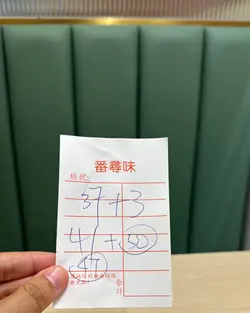 番尋味
枱號:
37+3
41+50
47
合計